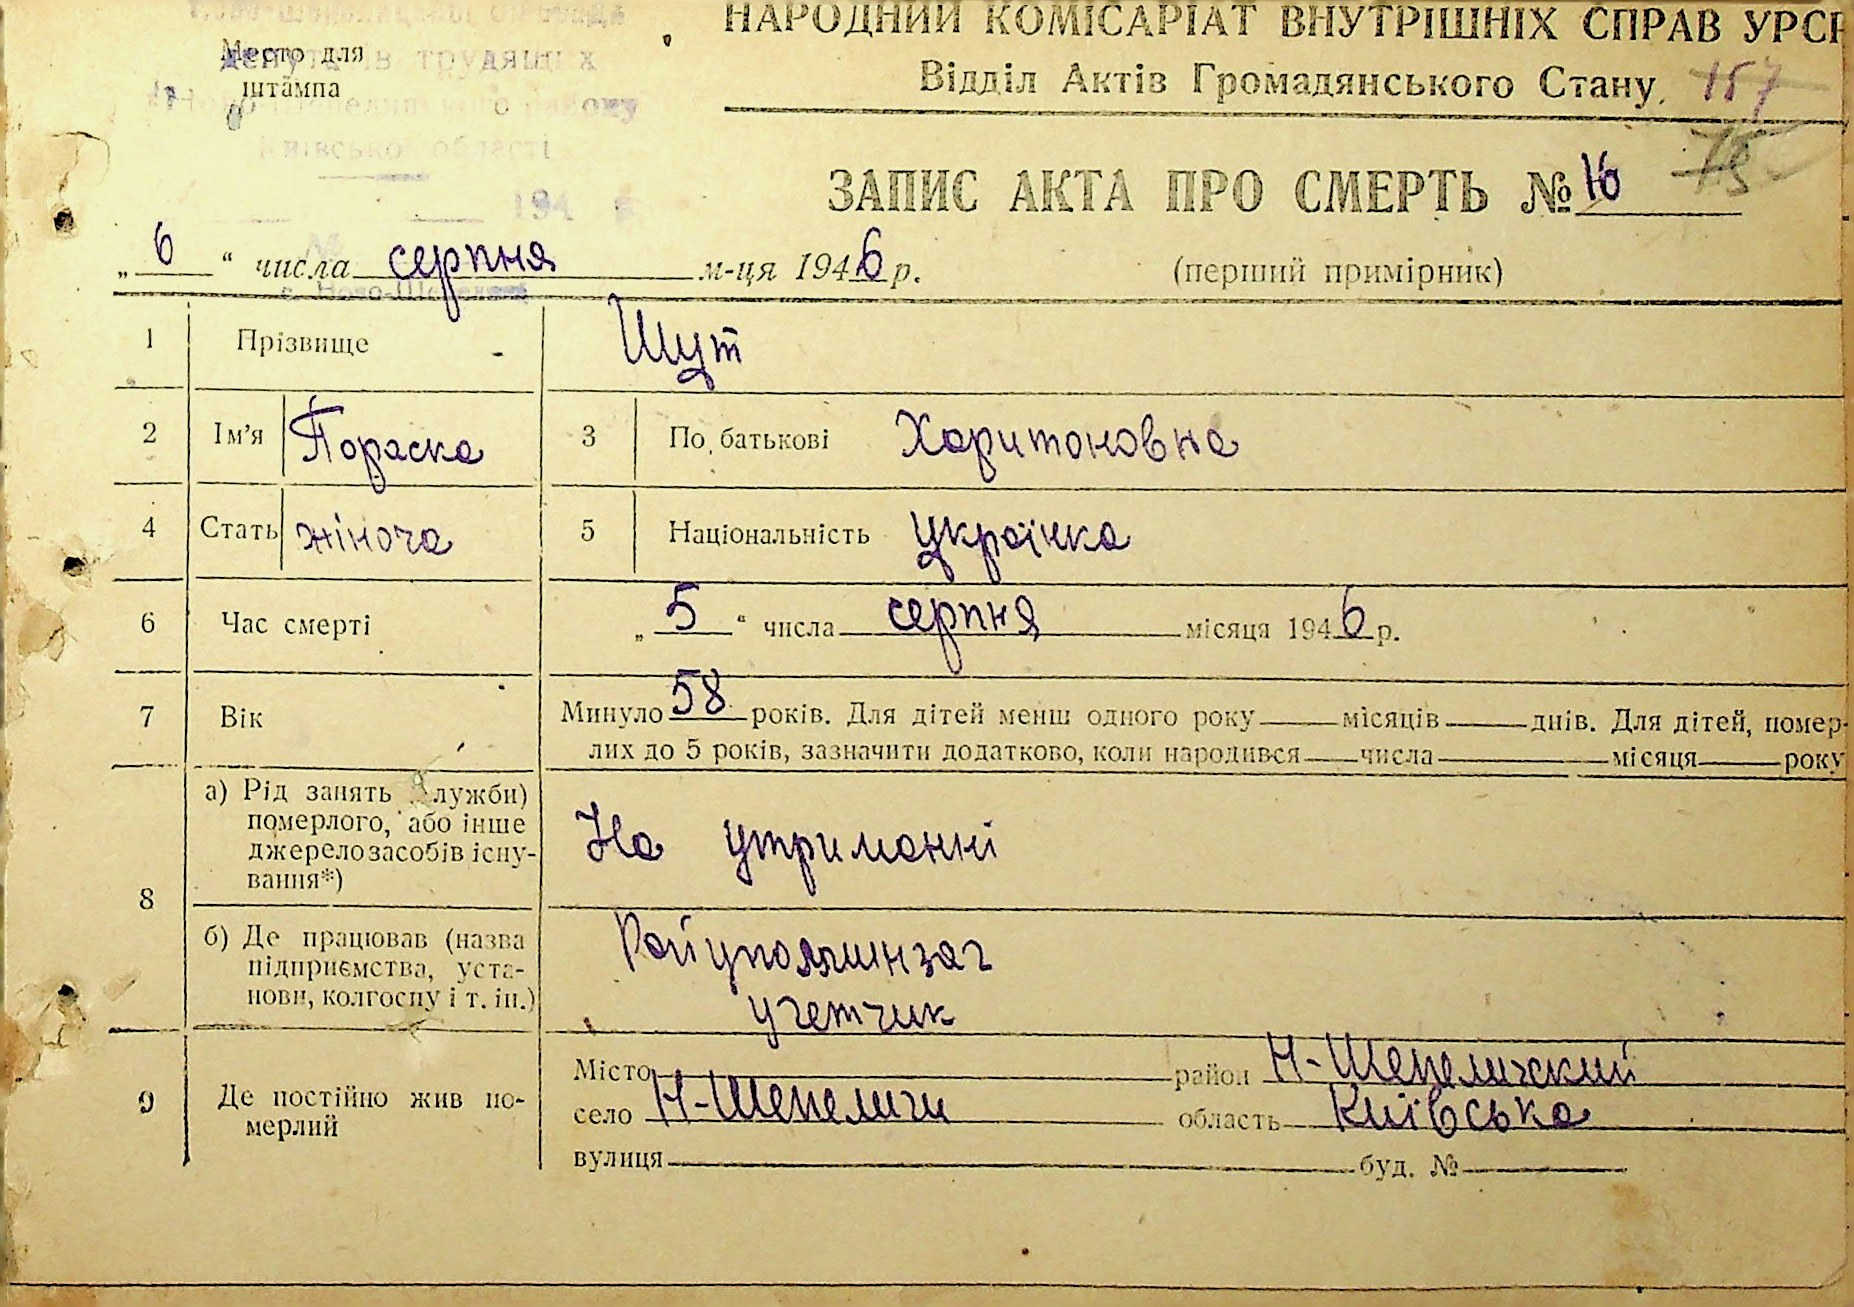 НАРОДНИЙ КОМІСАРІАТ ВНУТРІШНІХ СПРАВ УРСР
Відділ Актів Громадянського Стану
157
75
Место для
штампа
депутатів трудящих
Київської області
194
с. Ново-Шепеличі
ЗАПИС АКТА ПРО СМЕРТЬ № 16
„ 6 “ числа серпня м-ця 1946 р.
(перший примірник)
1 Прізвище Шут
2 Ім'я Параска 3 По батькові Харитоновна
4 Стать жіноча 5 Національність українка
6 Час смерті „ 5 “ числа серпня місяця 1946 р.
7 Вік Минуло 58 років. Для дітей менш одного року місяців днів. Для дітей, помер-
лих до 5 років, зазначити додатково, коли народився числа місяця року
8 а) Рід занять (служби)
померлого, або інше
джерело засобів існу-
вання*)
На утриманні
б) Де працював (назва
підприємства, уста-
нови, колгоспу і т. ін.)
Райуполминзаг
учетчик
9 Де постійно жив по-
мерлий
Місто район Н-Шепеличский
село Н-Шепеличи область Київська
вулиця буд. №